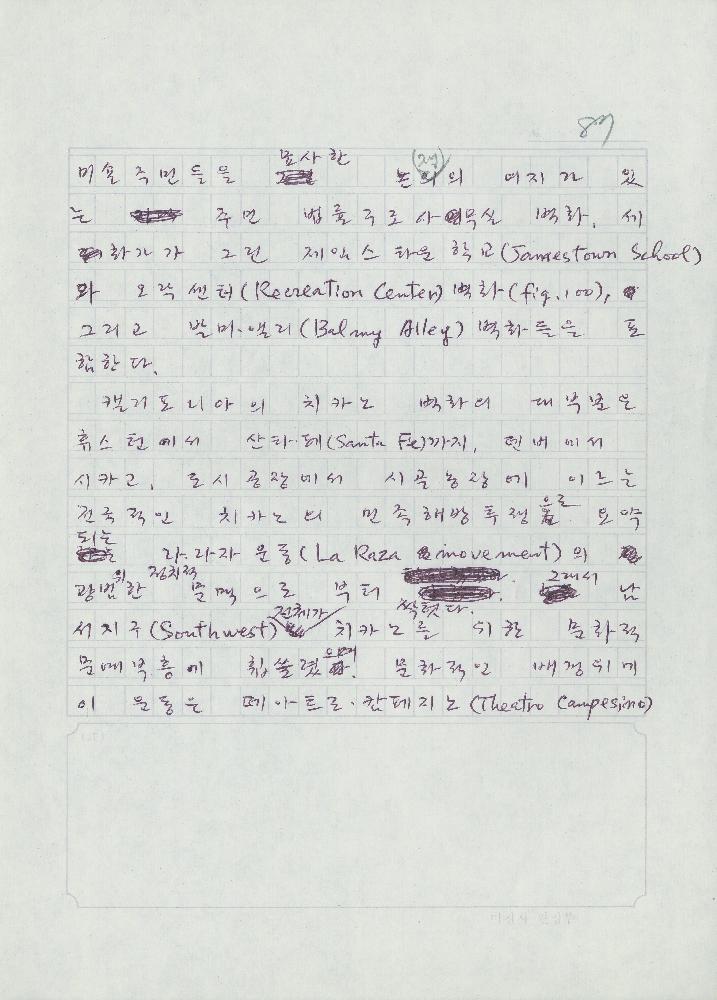 87
미숀 주민들을 묘사한 논의의 여지가 있
는 주민 법률구로사무실 벽화, 세
화가가 그린 제임스타운 학교(Jamestown School)
와 오락센터(Recreation Center) 벽화(fig.100),
그리고 발미·앨리(Balmy Alley) 벽화들을 포
함한다.
캘리포니아의 치카노 벽화의 대부분은
휴스턴에서 산타·페(Santa Fe)까지, 덴버에서
시카고, 도시공장에서 시골농장에 이르는
전국적인 치카노의 민족해방투쟁으로 요약
되는 라·라자 운동(La Raza movement)의
광범위한 정치적 문맥으로 부터 싹텄다. 그래서 남
서지구(Southwest) 전체가 치카노를 위한 문화적
문예부흥에 휩쓸렸으며 문화적인 배경위에
이 운동은 떼아트로·캄페지노(Theatro Campesino)
미진사 편집부